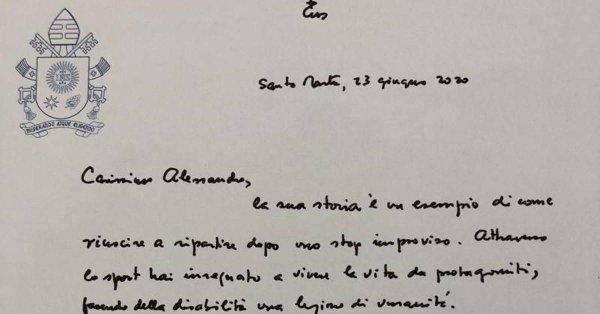 Santa Marta, 23 giugno 2020
MISERANDO ATQUE ELIGENDO
Carissimo Alessandro,
la sua storia è un esempio di come
riuscire a ripartire dopo uno stop improvviso. Attraverso
lo sport hai insegnato a vivere la vita da protagonisti,
facendo della disabilità una lezione di umanità.